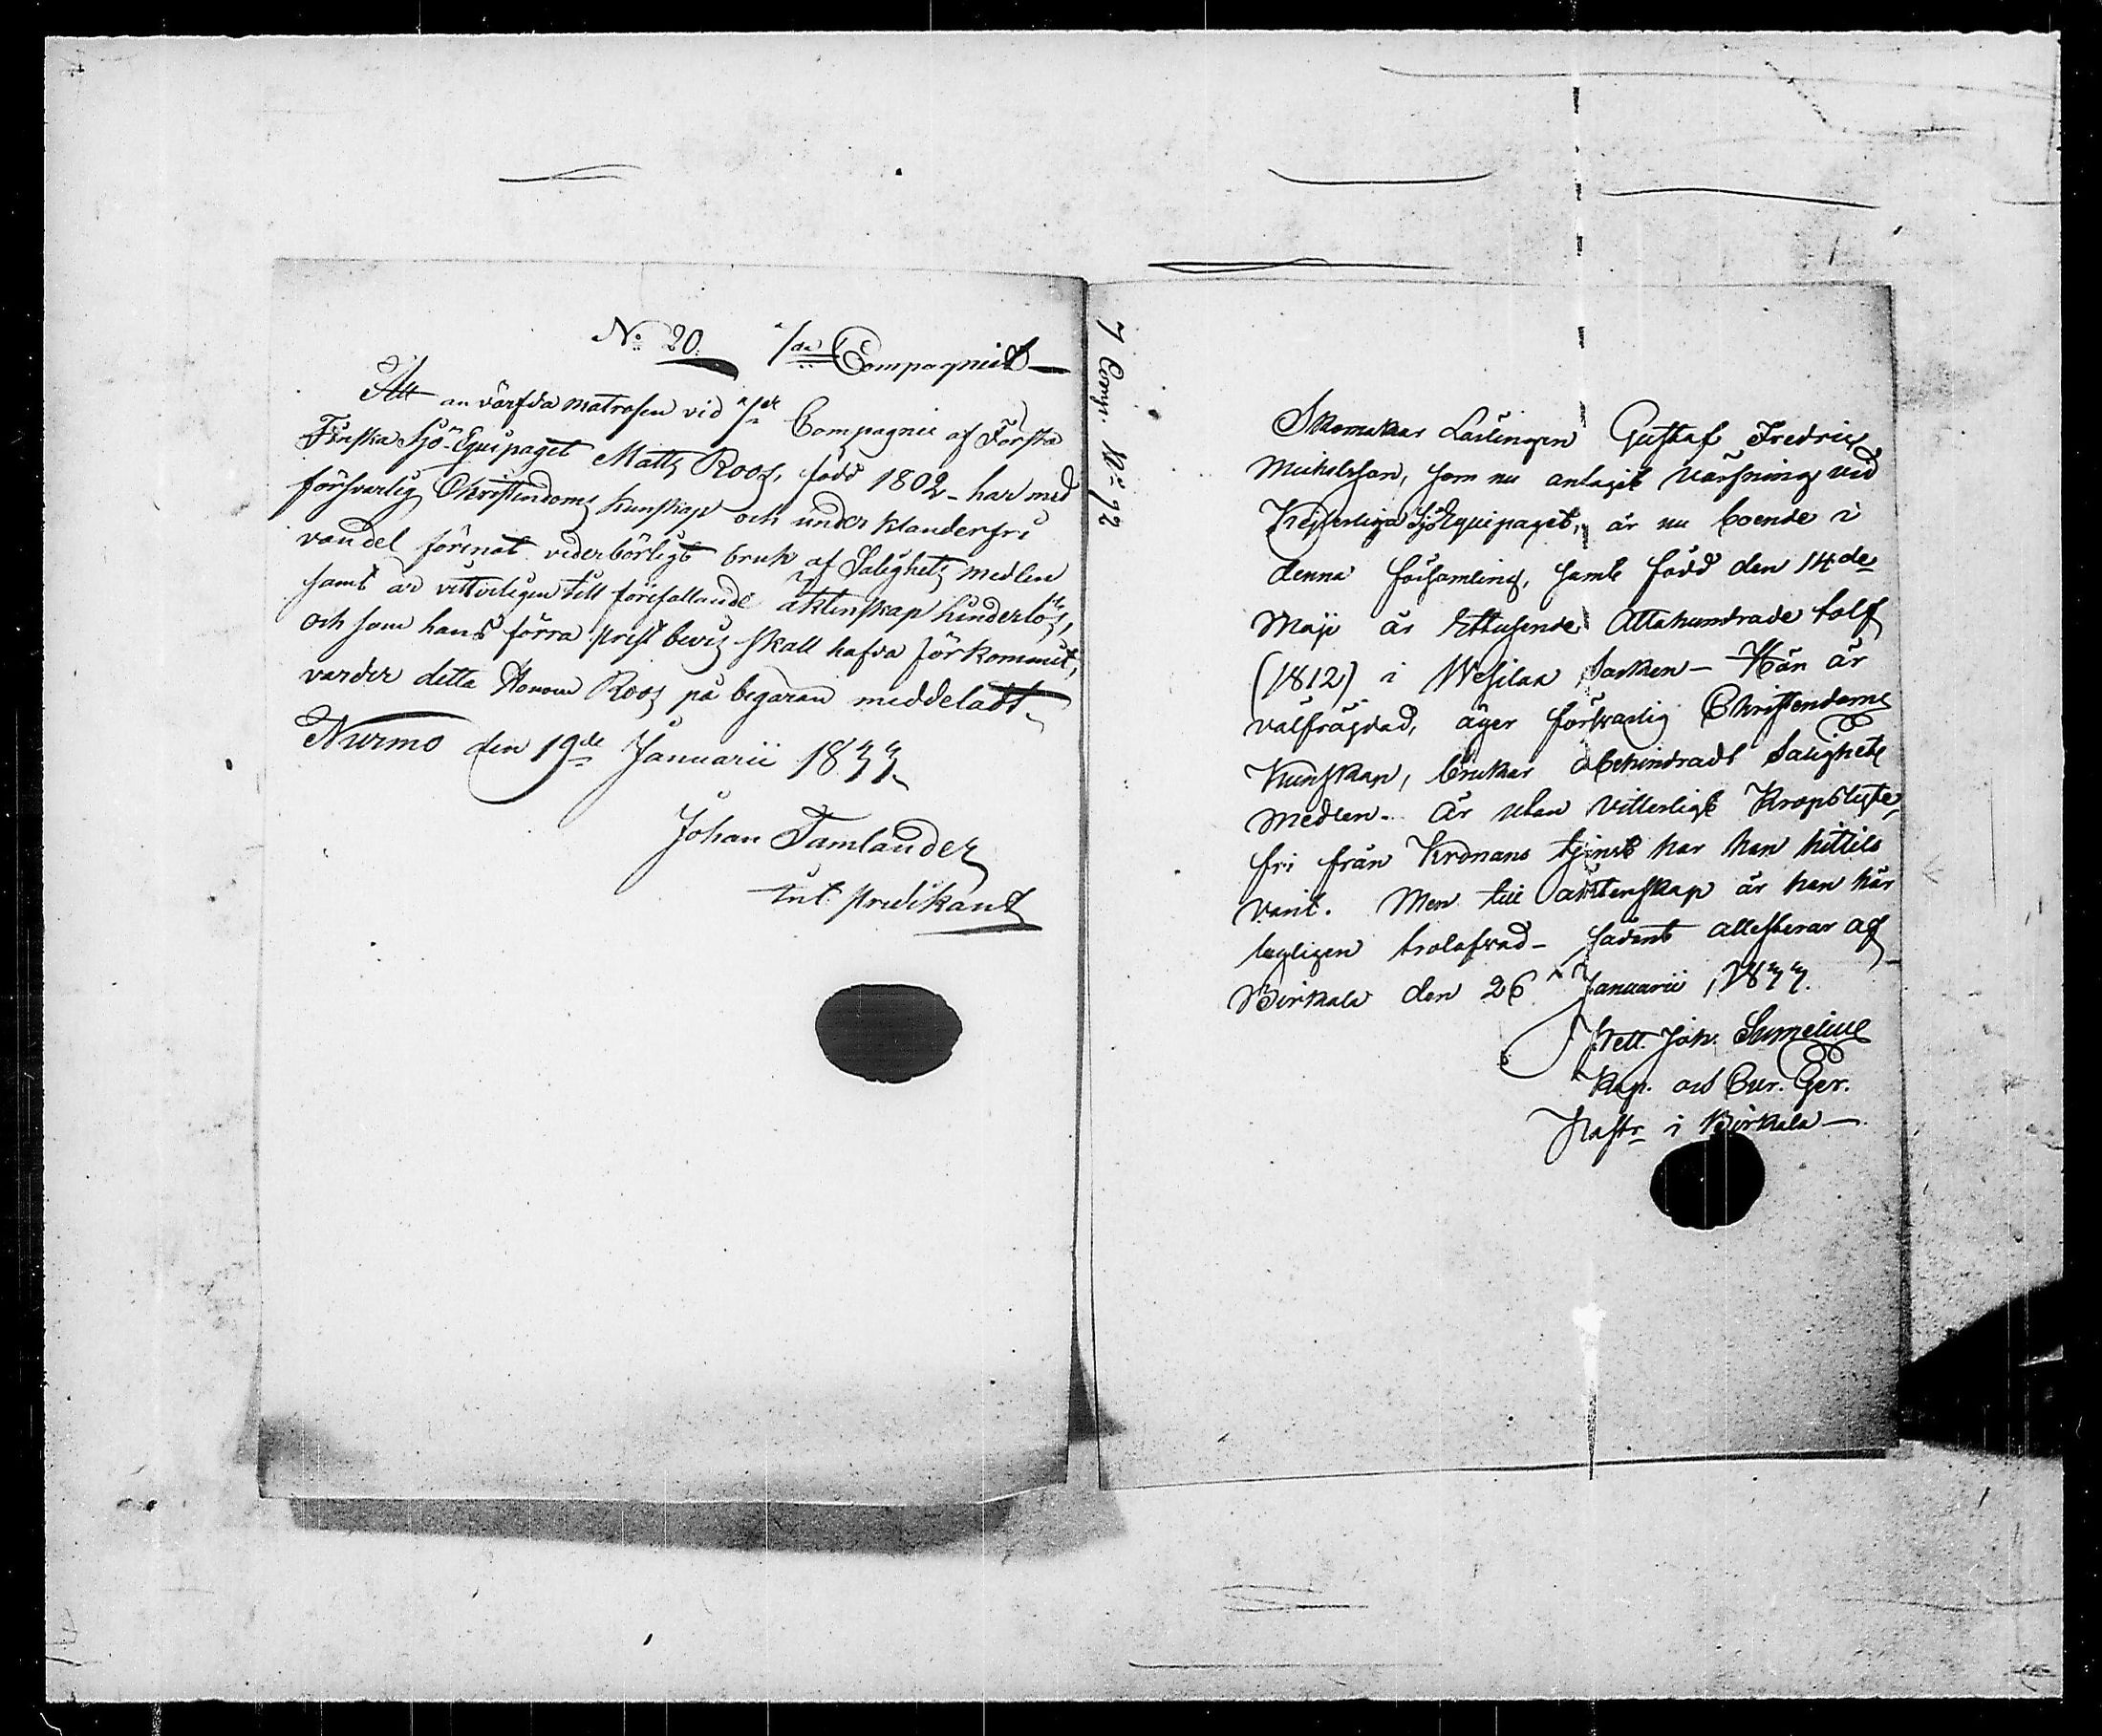 No 20. 7de Compagniet
Att anvärfda matrosen vid 7de Compagnie af Första
Finska Sjö-Equipaget Matts Roos, född 1802 - har med
försvarlig Christendoms kunskap och under klanderfri
vandel förenat vederbörligt bruk af Salighets medlen
samt är vitterligen till förefallande äktenskap hinderlös,
och som hans förra prest bevis skall hafva förkommit,
varder detta Honom Roos på begäran meddeladt
Nurmo den 19de Januarii 1833.
Johan Tamlander
Int. predikant
7 Comp. No 72
Skomakar Lärlingen Gustaf Fredric
Michelsson, som nu antagit värfning vid
Kejserliga Sjö Equipaget, är nu boende i
denna församling, samt född den 14de
Maji år Ettusende Åttahundrade tolf
(1812) i Wesilax Socken - Han är
välfräjdad, äger försvarlig Christendoms
Kunskap, brukar obehindradt Salighets
Medlen. Är utan vitterligt Kropslyte,
fri från Kronans tjenst har han hittils
varit. Men till äktenskap är han här
lagligen trolofvad - sådant attesterar af
Birkala den 26 Januarii 1833.
Joh. Sumelius
Kap. och Cur. Ger.
Pastr i Birkala